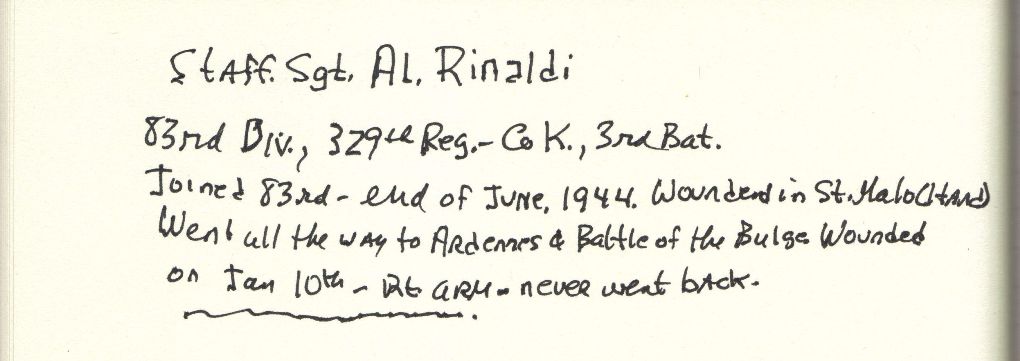 Staff. Sgt. Al. Rinaldi
83rd Div., 329th Reg.- Co K., 3rd Bat.
Joined 83rd - end of June, 1944. Wounded in St. Malo (Hand)
Went all the way to Ardennes & Battle of the Bulge Wounded
on Jan 10th - Rt arm - never went back.